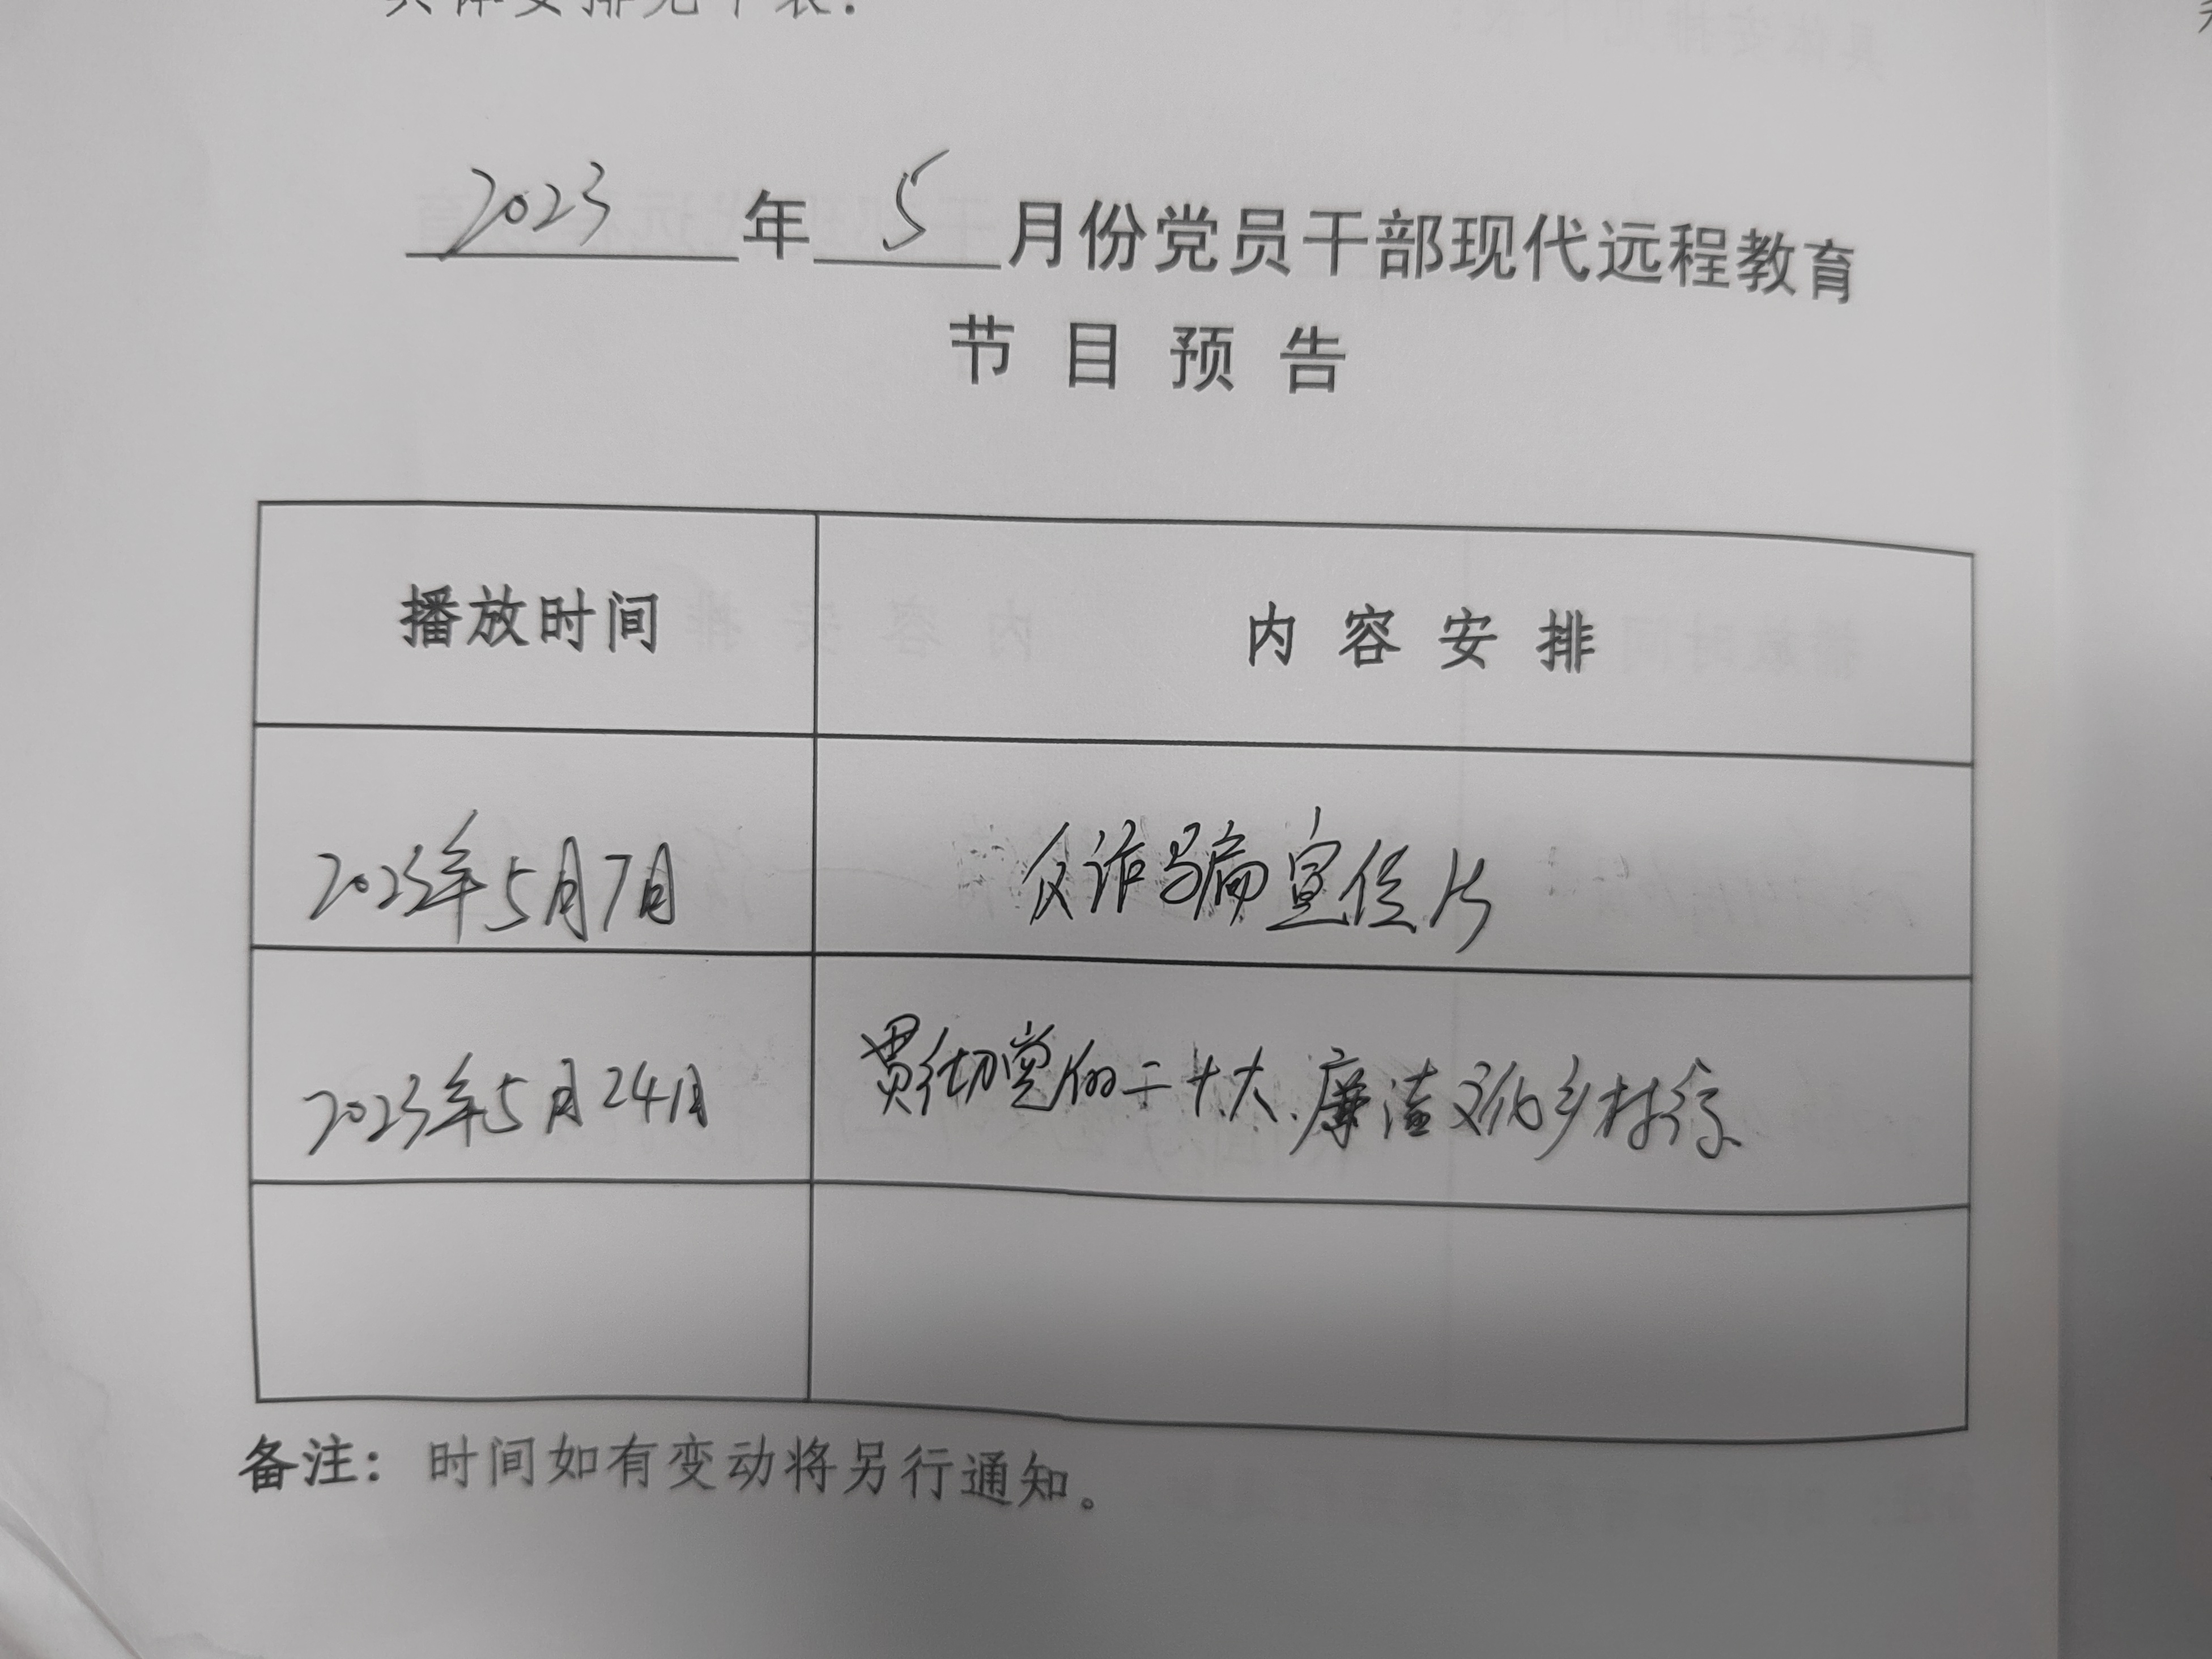 具体安排见下表：
2023年5月份党员干部现代远程教育
节目预告
播放时间 内容安排
2023年5月7日 反诈骗宣传片
2023年5月24日 贯彻党的二十大、廉洁文化乡村行
备注：时间如有变动将另行通知。